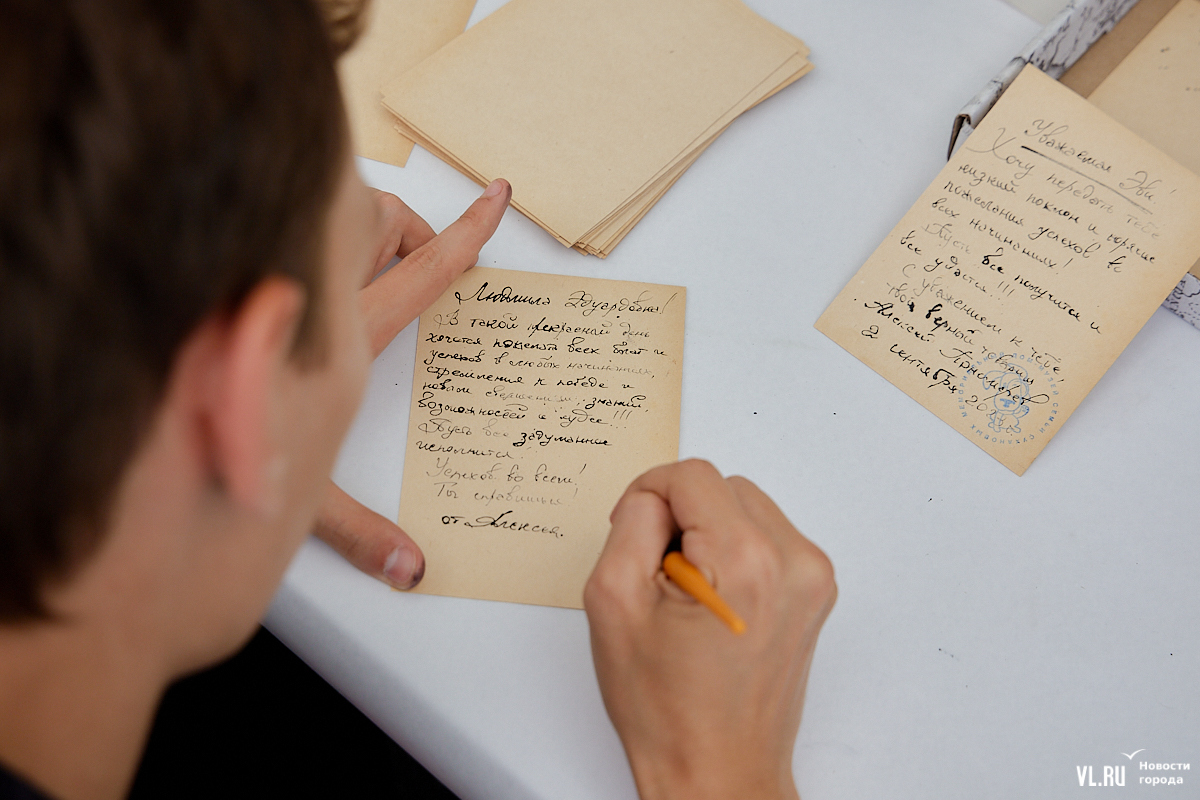 Людмила Эдуардовна!
В такой прекрасный день
хочется пожелать всех благ и
успехов в любых начинаниях,
стремления к победе и
новым свершениям, знаний,
возможностей и чудес!!!
Пусть все задуманное
исполнится!
Успехов во всем!
Ты справишься!
от Алексея.
Уважаемая Эви!
Хочу передать тебе
низкий поклон и горячие
пожелания успехов во
всех начинаниях!
Пусть все получится и
все удастся!!!
С уважением к тебе,
твой верный товарищ
Алексей
2 сентября, 20
VL.RU Новости
города